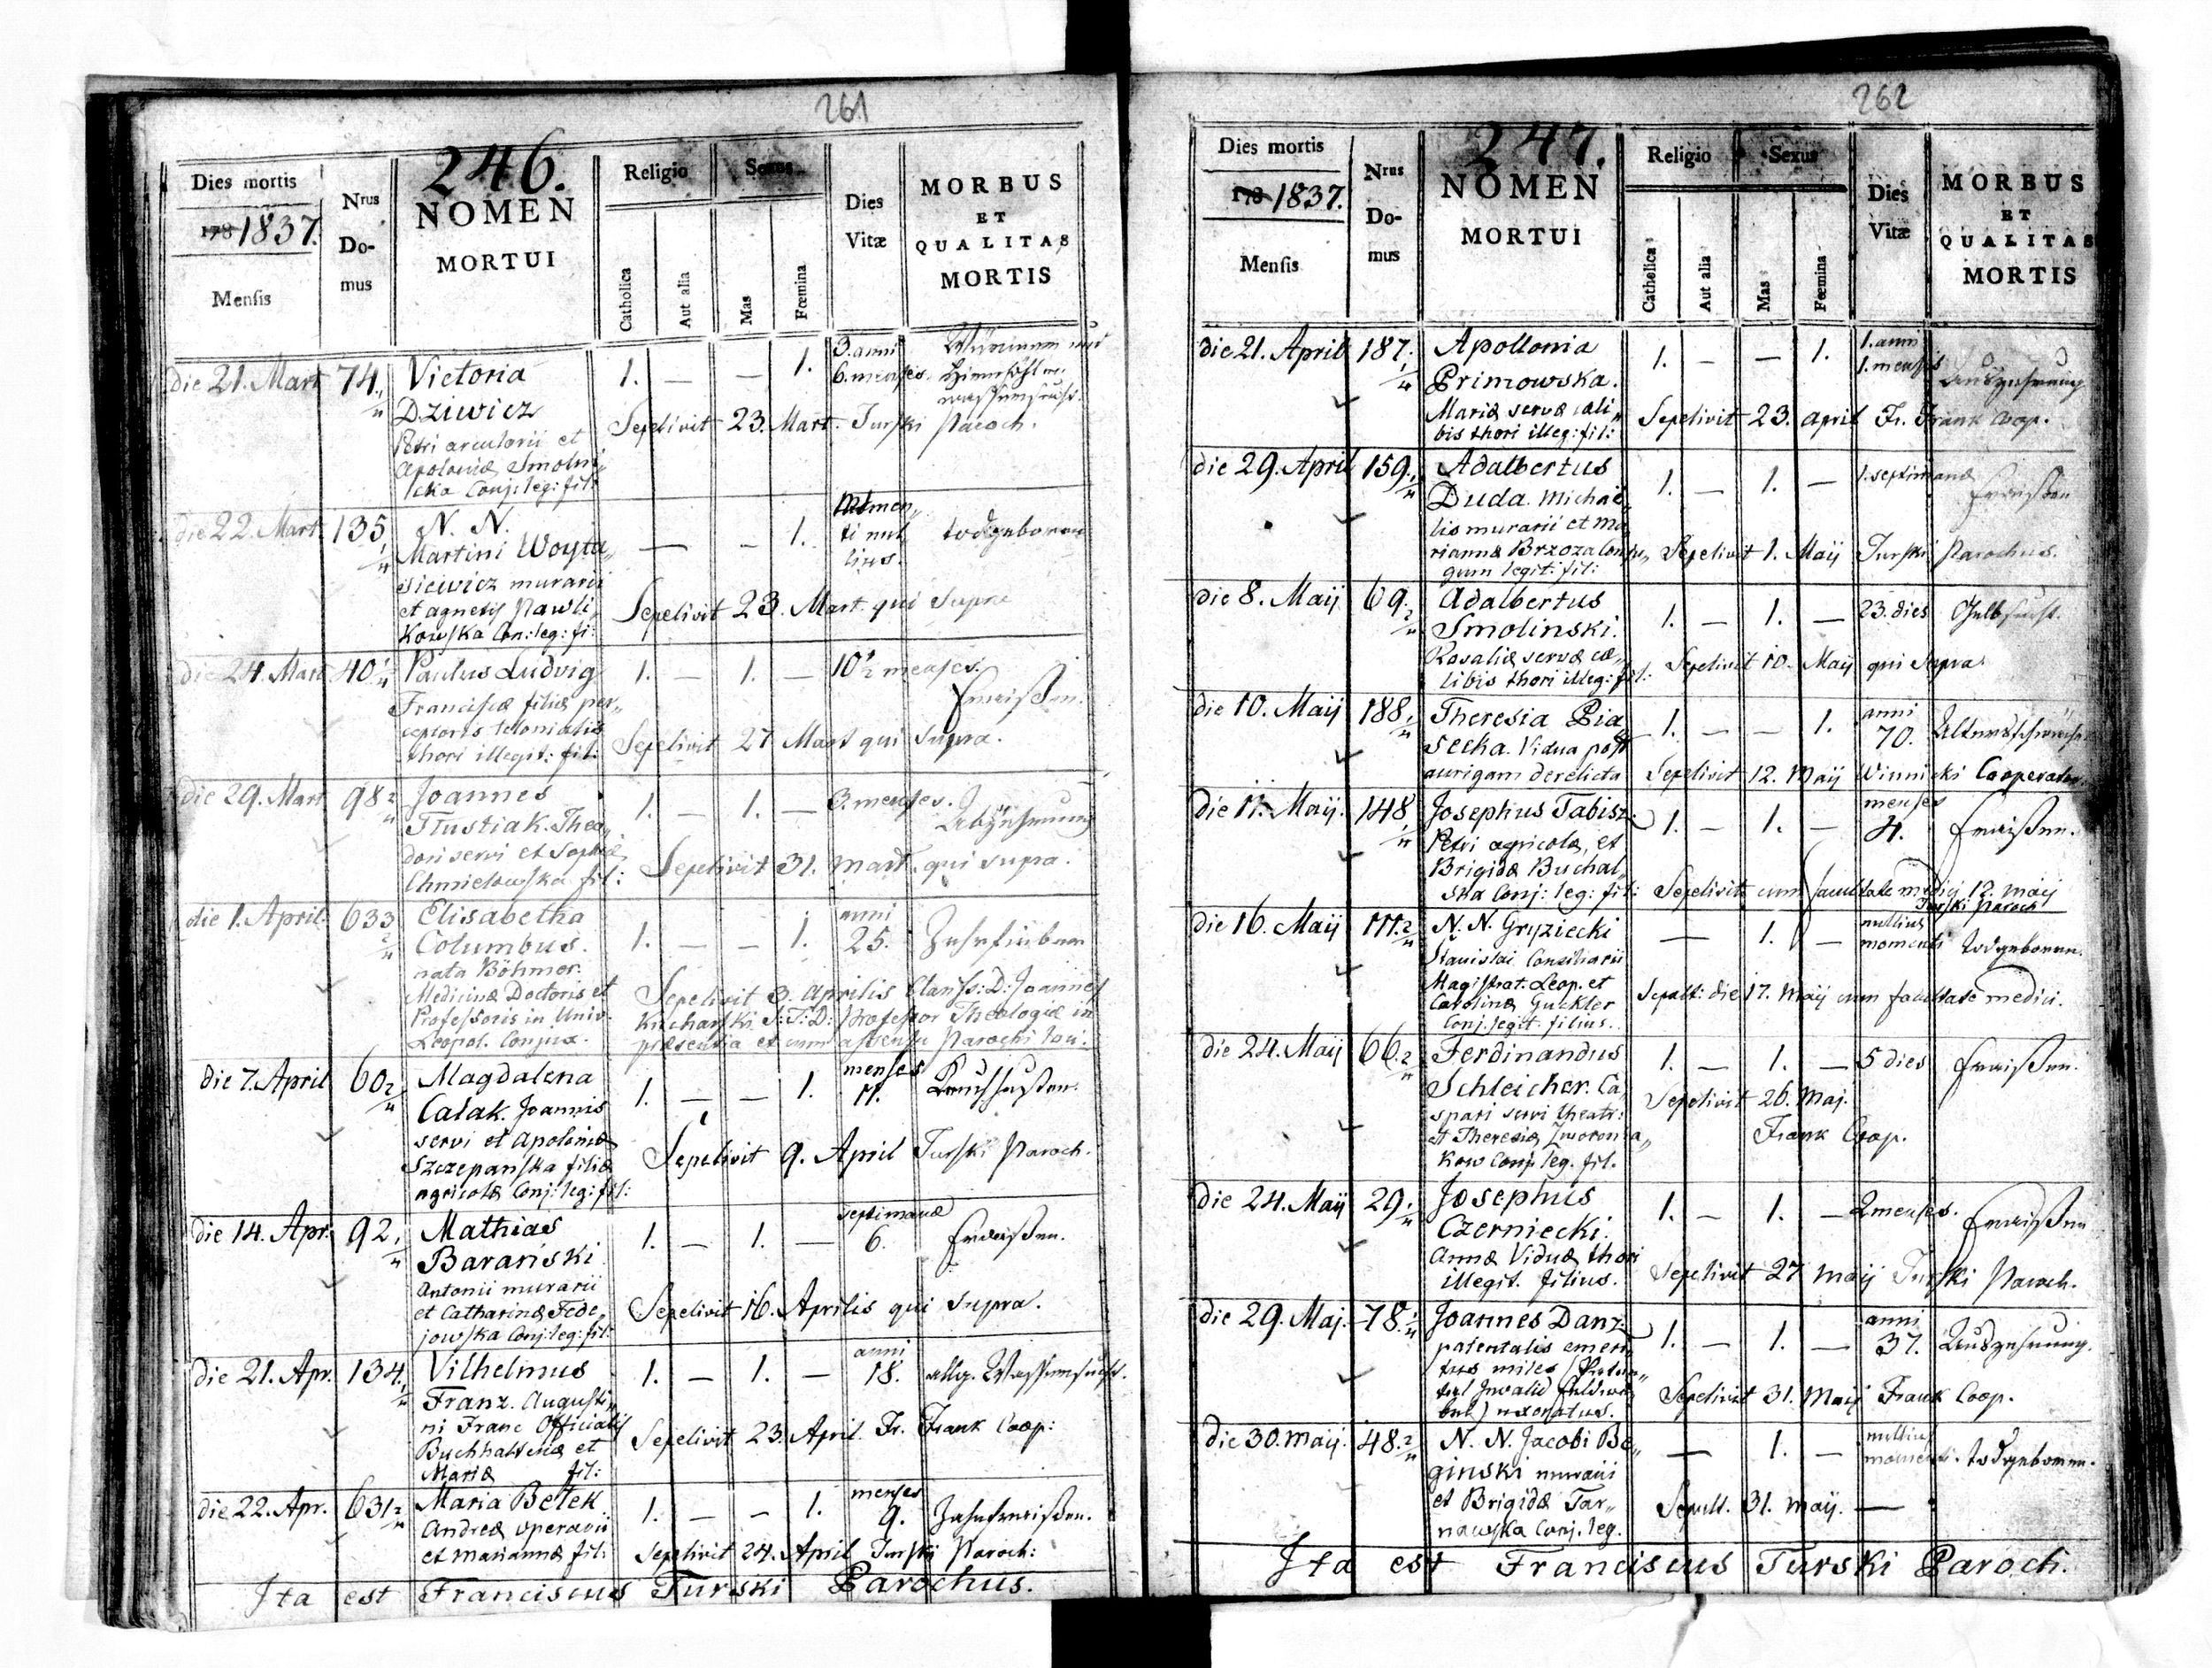 261
246.
Dies mortis
178 1837.
Mensis
Nrus
Do-
mus
NOMEN
MORTUI
Religio
Catholica
Aut alia
Sexus
Mas
Fœmina
Dies
Vitæ
MORBUS
ET
QUALITAS
MORTIS
die 21. Mart 74. 1/4 Victoria 1. — — 1. 3. anni
6. menses.
Dziewicz
Petri arcularii et
Apoloniæ Smolni„
cka Conj: leg: fil:
Sepelivit 23. Mart. Turski Paroch.
die 22. Mart. 135 1/4 N. N. — — 1. momen„
ti nul
lius. todtgeboren
Martini Woyta„
siewicz murarii
et Agnetis Pawli„
kowska Con: leg: fi:
Sepelivit 23. Mart. qui supra
die 24. Mart 40 1/4 Paulus Ludvig 1. — 1. — 10 1/2 menses.
Fraißen.
Franciscæ filiæ per„
ceptoris telonialis
thori illegit: fil:
Sepelivit 27 Mart qui supra.
die 29. Mart 98 2/4 Joannes 1. — 1. — 3. menses.
Abzehrung
Tłustiak. Theo„
dori servi et Sophiæ
Chmielowska fil:
Sepelivit 31. Mart. qui supra.
die 1. April. 633 2/4 Elisabetha 1. — — 1. anni
25. Zehrfieber
Columbus.
nata Böhmer.
Medicinæ Doctoris et
Professoris in Univ.
Leopol. Conjux.
Sepelivit 3. Aprilis Clariss: D: Joannes
Kucharski S: T: D: Professor Theologiæ in
præsentia et cum assensu Parochi loci.
die 7. April 60 2/4 Magdalena 1. — — 1. menses
11. Keuchhusten.
Całak. Joannis
servi et Apoloniæ
Szczepanska filiæ
agricolæ Conj: leg: fil:
Sepelivit 9. April Turski Paroch.
die 14. Apr. 92. 1/4 Mathias 1. — 1. — septimanæ
6. Fraißen.
Barański
Antonii murarii
et Catharinæ Fede„
jowska Conj: leg: fil:
Sepelivit 16. Aprilis qui supra.
die 21. Apr. 134. 1/4 Vilhelmus 1. — 1. — anni
18. allg. Wassersucht.
Franz. Augusti„
ni Franc Officialis
Buchhalteriæ et
Mariæ fil:
Sepelivit 23. April. Fr. Frank Coop:
die 22. Apr. 631 2/4 Maria Bełek 1. — — 1. menses
9. Zahnfraißen.
Andreæ operarii
et Mariannæ fil:
Sepelivit 24. April Turski Paroch:
Ita est Franciscus Turski Parochus.
262
247.
Dies mortis
178 1837.
Mensis
Nrus
Do-
mus
NOMEN
MORTUI
Religio
Catholica
Aut alia
Sexus
Mas
Fœmina
Dies
Vitæ
MORBUS
ET
QUALITAS
MORTIS
die 21. April 187. 1/4 Apollonia 1. — — 1. 1. anni
1. mensis Auszehrung
Primowska.
Mariæ servæ cæli„
bis thori illeg: fil:
Sepelivit 23. April Fr. Frank Coop.
die 29. April 159. 1/4 Adalbertus 1. — 1. — 1. septimanæ
Fraißen
Duda. Michaë„
lis murarii et Ma„
riannæ Brzoza Conju„
gum legit: fil:
Sepelivit 1. Maij Turski Parochus.
die 8. Maij 69. 2/4 Adalbertus 1. — 1. — 23. dies Gelbsucht.
Smolinski.
Rosaliæ servæ cæ„
libis thori illeg: fil:
Sepelivit 10. Maij qui supra.
die 10. Maij 188. 1/4 Theresia Pia 1. — — 1. anni
70. Altersschwäche
secka. Vidua post
aurigam derelicta
Sepelivit 12. Maij Winnicki Cooperator.
die 11. Maij. 148 1/4 Josephus Tabisz. 1. — 1. — menses
4. Fraißen.
Petri agricolæ, et
Brigidæ Buchal„
ska Conj: leg: fil:
Sepelivit cum facultate medici 12. Maij
Turski Paroch
die 16. Maij 111. 2/4 N. N. Gryziecki — 1. — nullius
momenti todtgeboren.
Stanislai Consiliarii
Magistrat: Leop. et
Carolinæ Guckler
Conj. legit. filius.
Sepult: die 17. Maij cum facultate medici.
die 24. Maij 66. 2/4 Ferdinandus 1. — 1. — 5 dies Fraißen.
Schleicher. Ca„
spari servi theatr:
et Theresiæ
kow Conj. leg. fil.
Sepelivit 26. Maj.
Frank Coop.
die 24. Maij 29. 1/4 Josephus 1. — 1. — 2 menses. Fraißen
Czerniecki.
Annæ Viduæ thori
illegit. filius.
Sepelivit 27 Maij Turski Paroch.
die 29. Maj. 78. 1/4 Joannes Danz. 1. — 1. — anni
37. Auszehrung.
patentalis emeri„
tus miles (Paten„
tal Invalid Feldwe„
bel) uxoratus.
Sepelivit 31. Maij Frank Coop.
die 30. Maij. 48. 2/4 N. N. Jacobi Be„ — 1. — nullius
momenti. todtgeboren.
ginski murarii
et Brigidæ Tar„
nawska Conj. leg.
Sepult. 31. Maij. —
Ita est Franciscus Turski Paroch.